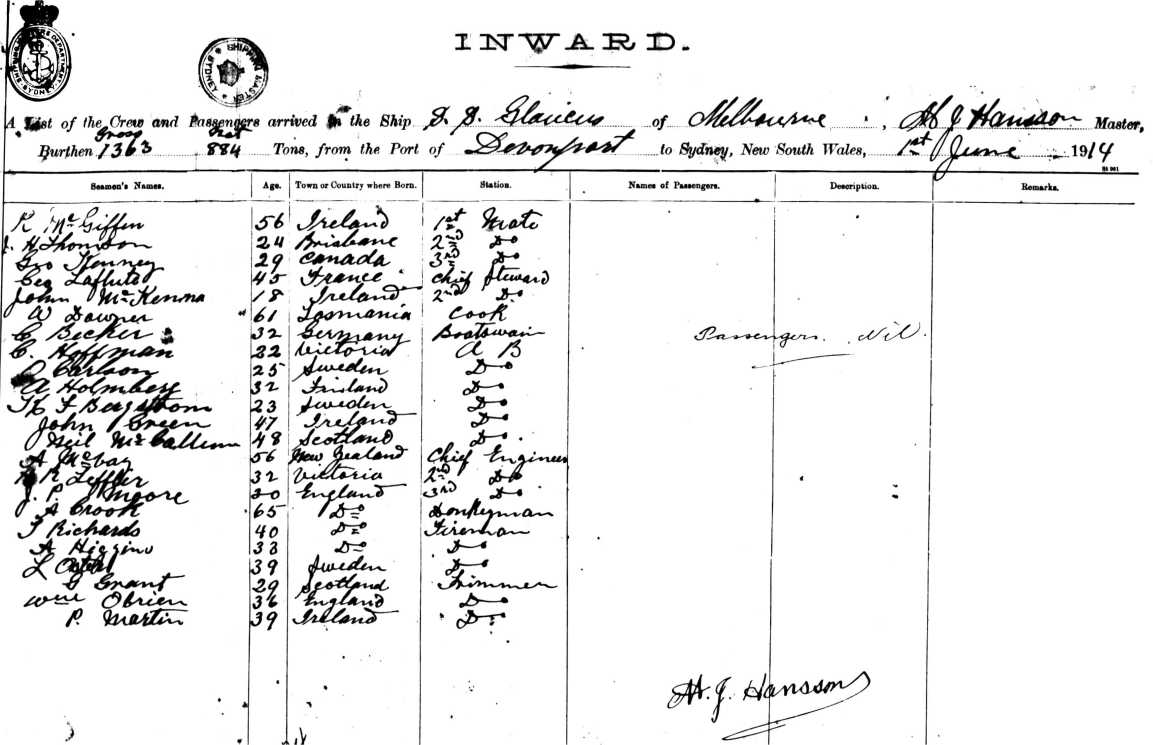 INWARD.
SHIPPING MASTER SYDNEY
A List of the Crew and Passengers arrived in the Ship S. S. Glaucus of Melbourne, H. J. Hansson Master,
Burthen Gross 1363 Net 884 Tons, from the Port of Devonport to Sydney, New South Wales, 1st June 1914
Seamen's Names. Age. Town or Country where Born. Station. Names of Passengers. Description. Remarks.
R McGiffen 56 Ireland 1st Mate
J. H Thomson 24 Brisbane 2nd Do
Geo Kenney 29 Canada 3rd Do
45 France Chief Steward
John McKenna 18 Ireland 2nd Do
W Downer 61 Tasmania Cook
C Becker 32 Germany Boatswain
Passengers Nil.
C. Hoffman 22 Victoria A B
Carlson 25 Sweden Do
A Holmberg 32 Do
F Bergstrom 23 Sweden Do
John Green 47 Ireland Do
Neil McCallum 48 Scotland Do
A 56 New Zealand Chief Engineer
R Leffler 32 Victoria 2nd Do
J. P. Moore England 3rd Do
A Crook 65 Do Donkeyman
T Richards 40 Do Fireman
A Higgins 33 Do Do
L 39 Sweden Do
G Grant 29 Scotland Trimmer
Wm Obrien 36 England Do
P. Martin 39 Ireland Do
H. J. Hansson